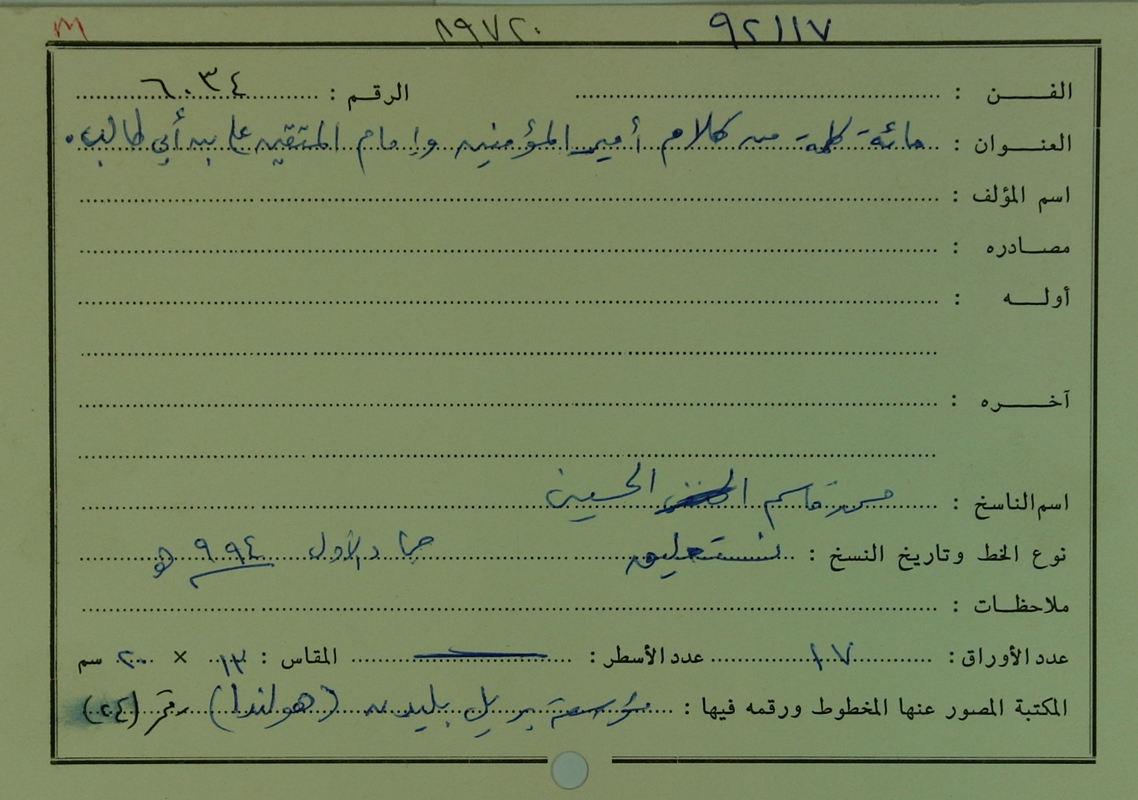 ٩٢١١٧ ٨٩٧٢٠
الفـــن : الرقـم : ٦٠٣٤
العنـوان : مائة كلمة من كلام أمير المؤمنين وإمام المتقين علي بن أبي طالب.
اسم المؤلف :
مصـادره :
أولـــه :
آخـــره :
اسم الناسخ : محمد قاسم الحسيني
نوع الخط وتاريخ النسخ : نستعليق جماد الأول ٩٩٤ هـ
ملاحظـات :
عدد الأوراق : ١٧ عدد الأسطر : المقاس : ١٣ × ٢٠ سم
المكتبة المصور عنها المخطوط ورقمه فيها : مؤسسة بريل بليدن (هولندا) رقم (٢٤)